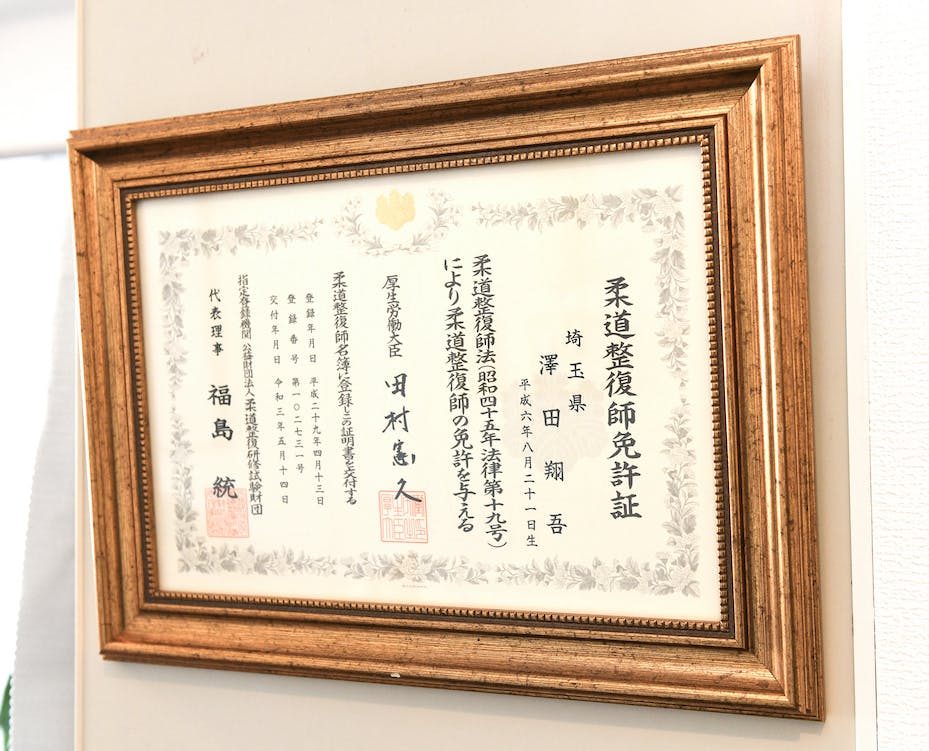 柔道整復師免許証
埼玉県
澤田翔吾
平成六年八月二十一日生
柔道整復師法(昭和四十五年法律第十九号)
により柔道整復師の免許を与える
厚生労働大臣 田村憲久
柔道整復師名簿に登録しこの証明書を交付する
登録年月日 平成二十九年四月十三日
登録番号 第一〇二七三一号
交付年月日 令和三年五月十四日
指定登録機関 公益財団法人柔道整復研修試験財団
代表理事 福島統